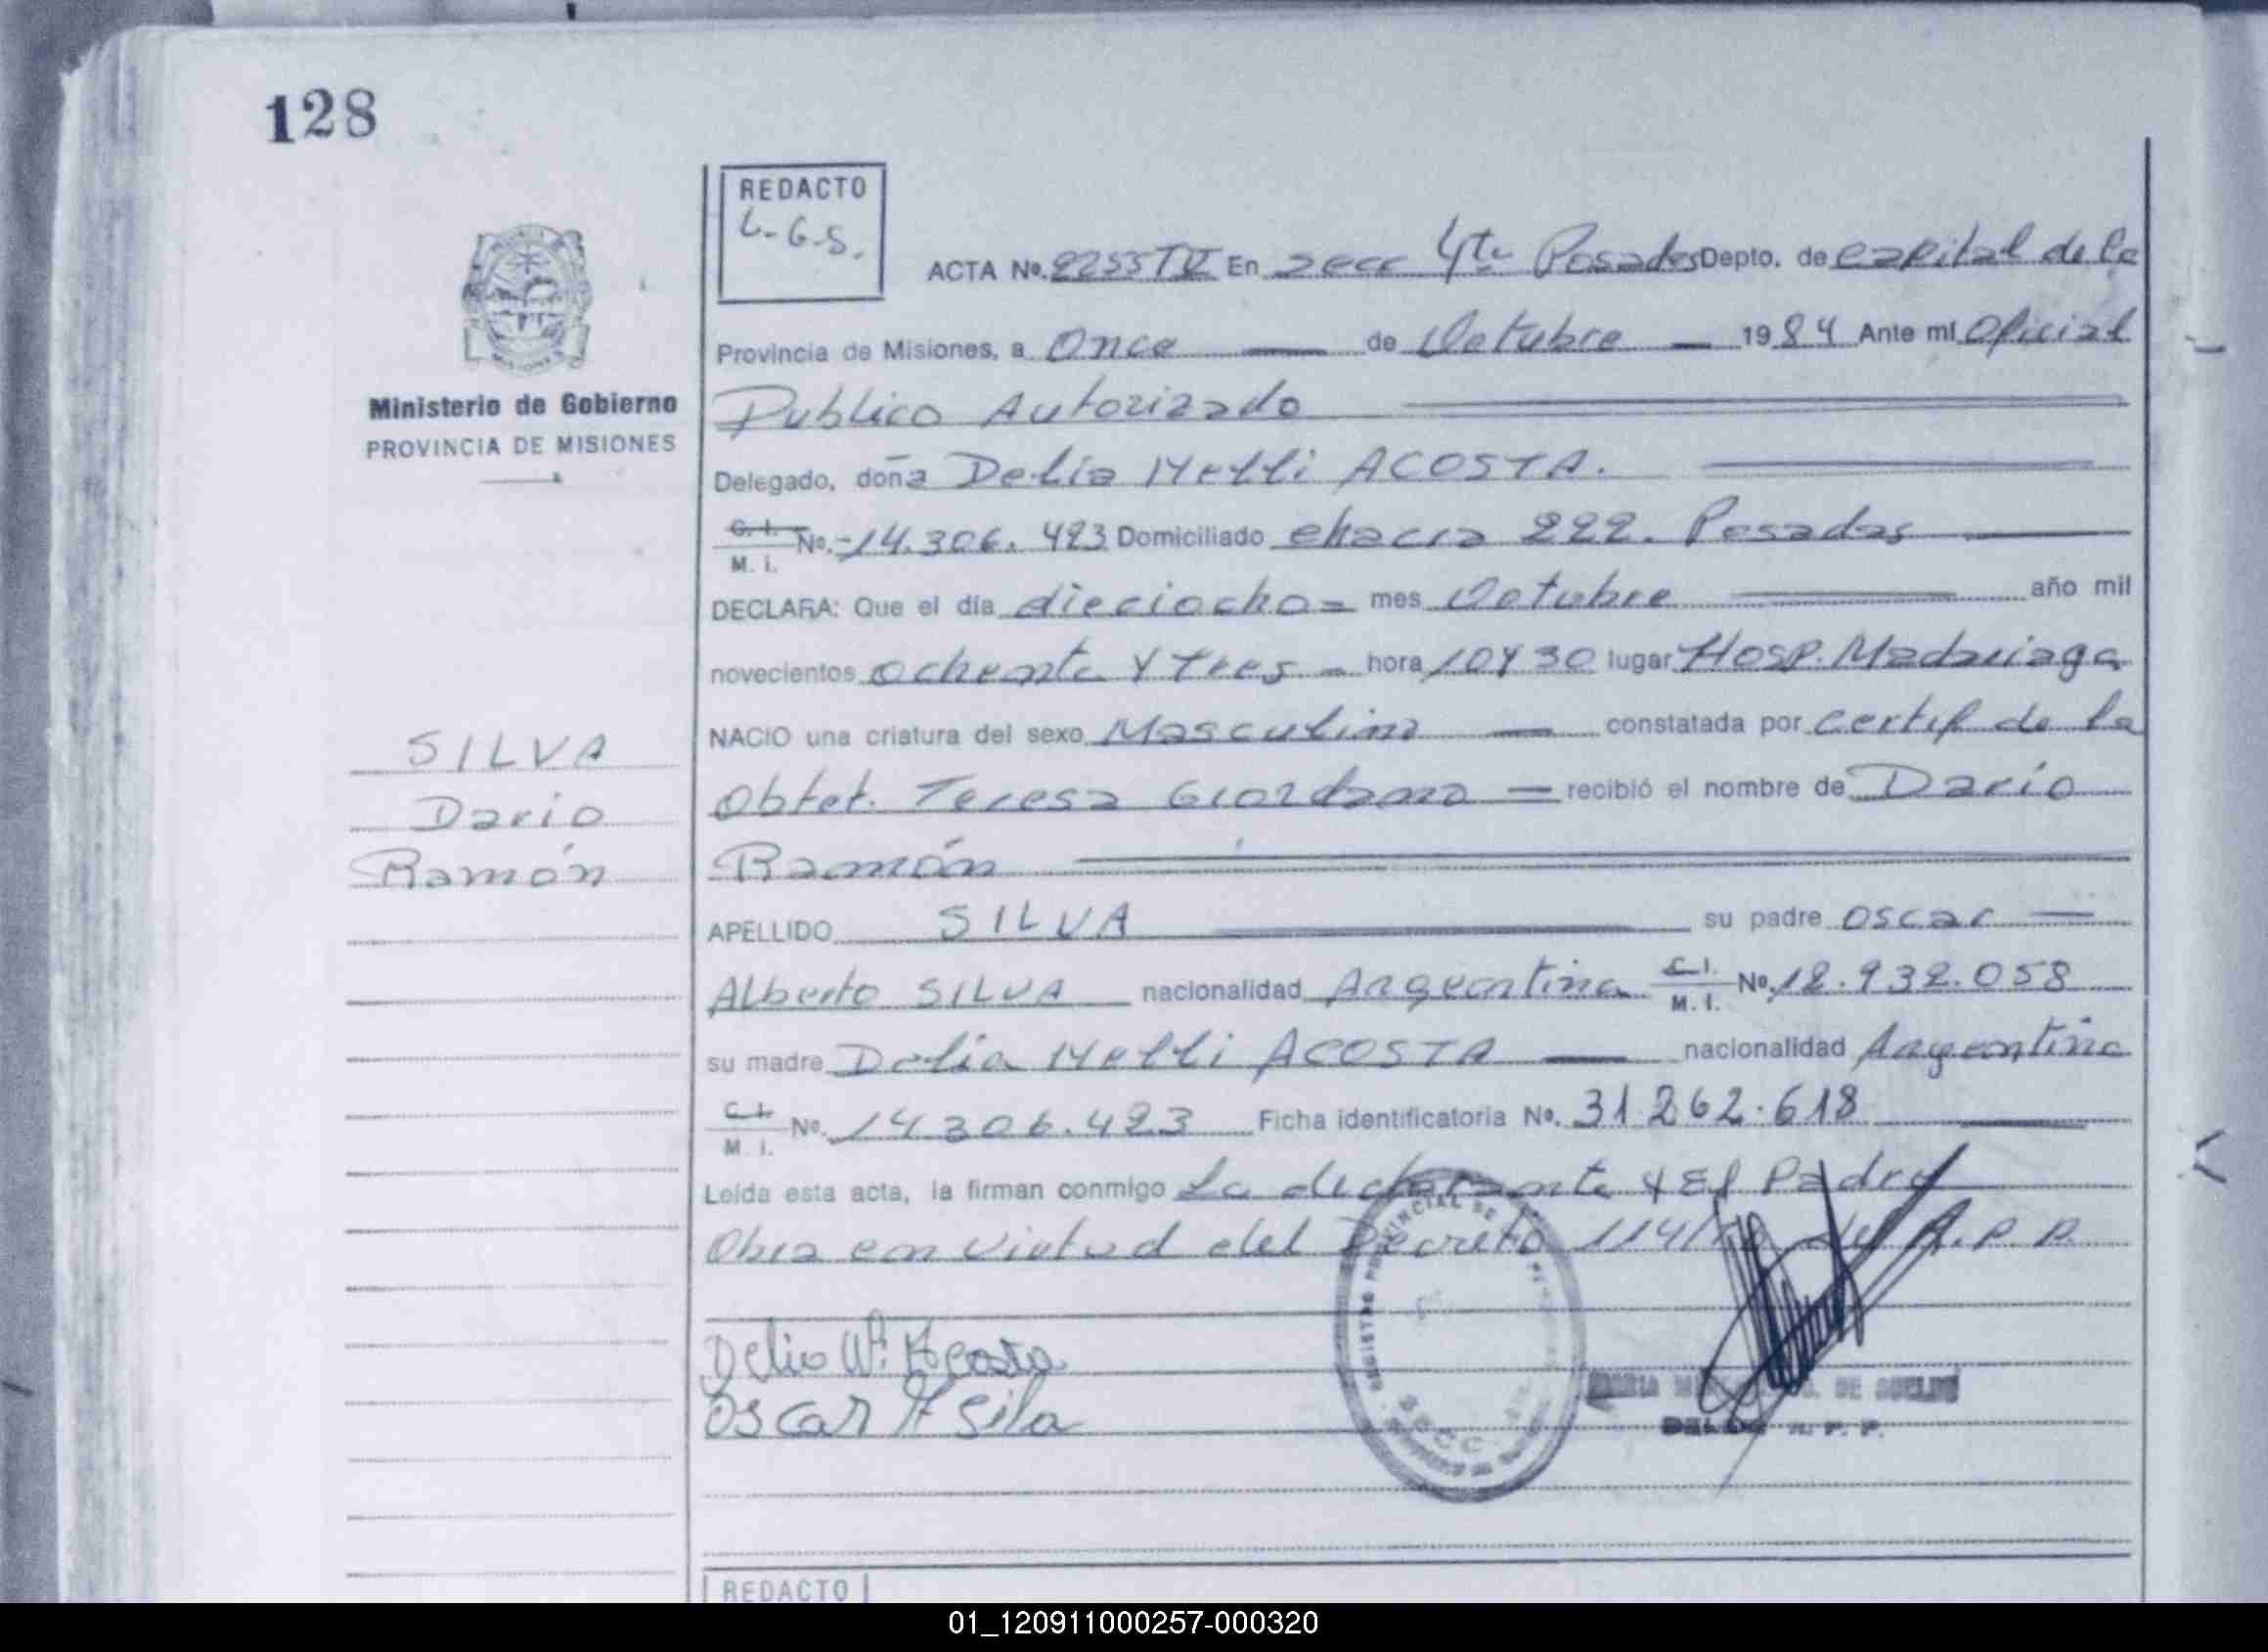 128
REDACTO
L.G.S.
ACTA No. 2255 TV En secc 4ta Posadas Depto. de capital de la
Provincia de Misiones, a Once de Octubre 1984 Ante mí Oficial
Ministerio de Gobierno
Publico Autorizado
PROVINCIA DE MISIONES
Delegado, doña Delia Nelli ACOSTA.
C. I. M. I. No. 14.306.423 Domiciliado chacra 222. Posadas
DECLARA: Que el día dieciocho = mes Octubre año mil
novecientos ochenta y tres hora 10 y 30 lugar Hosp. Madariaga
NACIO una criatura del sexo Masculino constatada por certif de la
SILVA
Obtet. Teresa Giordano recibió el nombre de Dario
Dario
Ramón
Ramón
APELLIDO SILVA su padre Oscar
Alberto SILVA nacionalidad Argentina C. I. M. I. No. 12.932.058
su madre Delia Nelli ACOSTA nacionalidad Argentina
C. I. M. I. No. 14.306.423 Ficha identificatoria No. 31 262.618
Leída esta acta, la firman conmigo La declarante y El Padre
Obra en virtud del Decreto 114/ del R.P.P.
Delia N. Acosta
Oscar A Sila
REGISTRO PROVINCIAL DE
DE SUELDO
R. P. P.
REDACTO
01_120911000257-000320